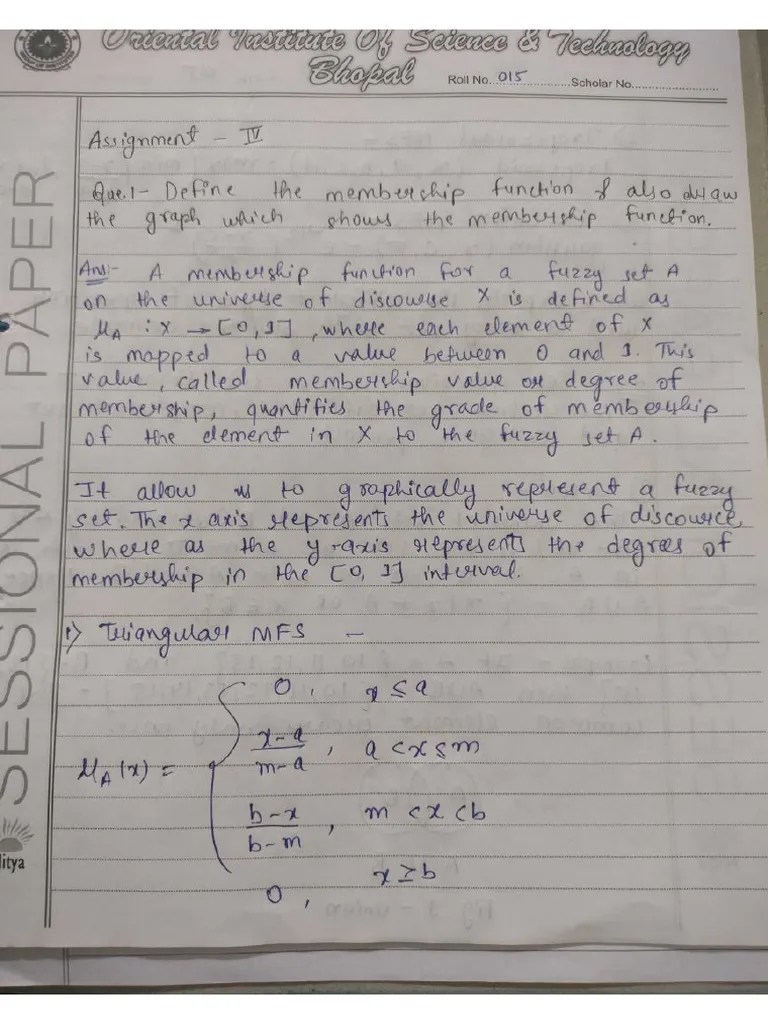 Oriental Institute Of Science & Technology
Bhopal
Roll No. 015 Scholar No.
SESSIONAL PAPER
ditya
Assignment - IV
Que.1- Define the membership function & also draw
the graph which shows the membership function.
Ans:- A membership function for a fuzzy set A
on the universe of discourse X is defined as
μA : X → [0, 1], where each element of X
is mapped to a value between 0 and 1. This
value, called membership value or degree of
membership, quantifies the grade of membership
of the element in X to the fuzzy set A.
It allow us to graphically represent a fuzzy
set. The x axis represents the universe of discource,
where as the y-axis represents the degrees of
membership in the [0, 1] interval.
1) Triangular MFS -
0, x ≤ a
x-a / m-a , a < x ≤ m
μA(x) =
b-x / b-m , m < x < b
0, x ≥ b